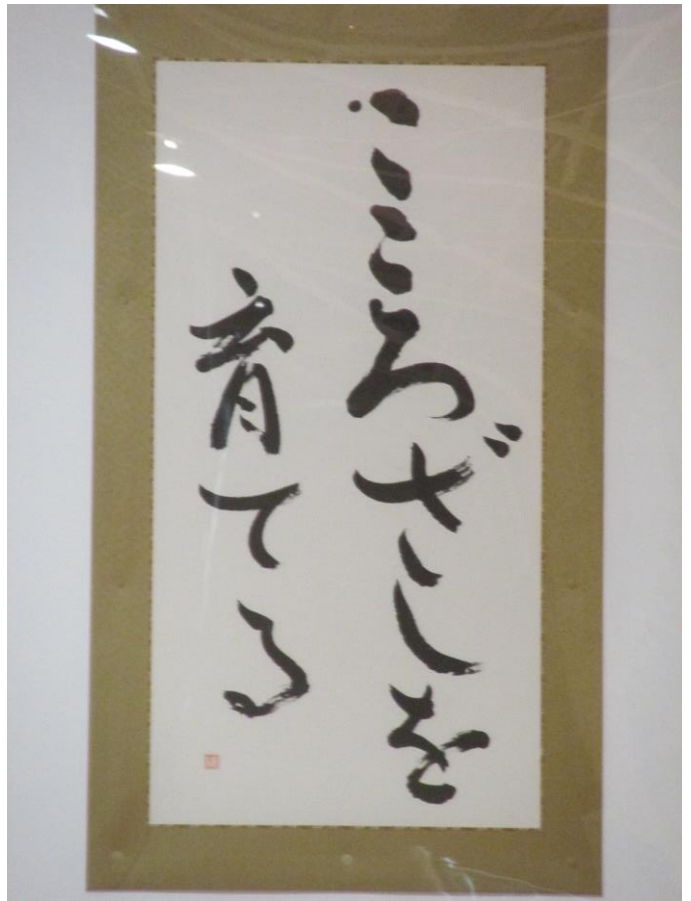 こころざしを
育てる